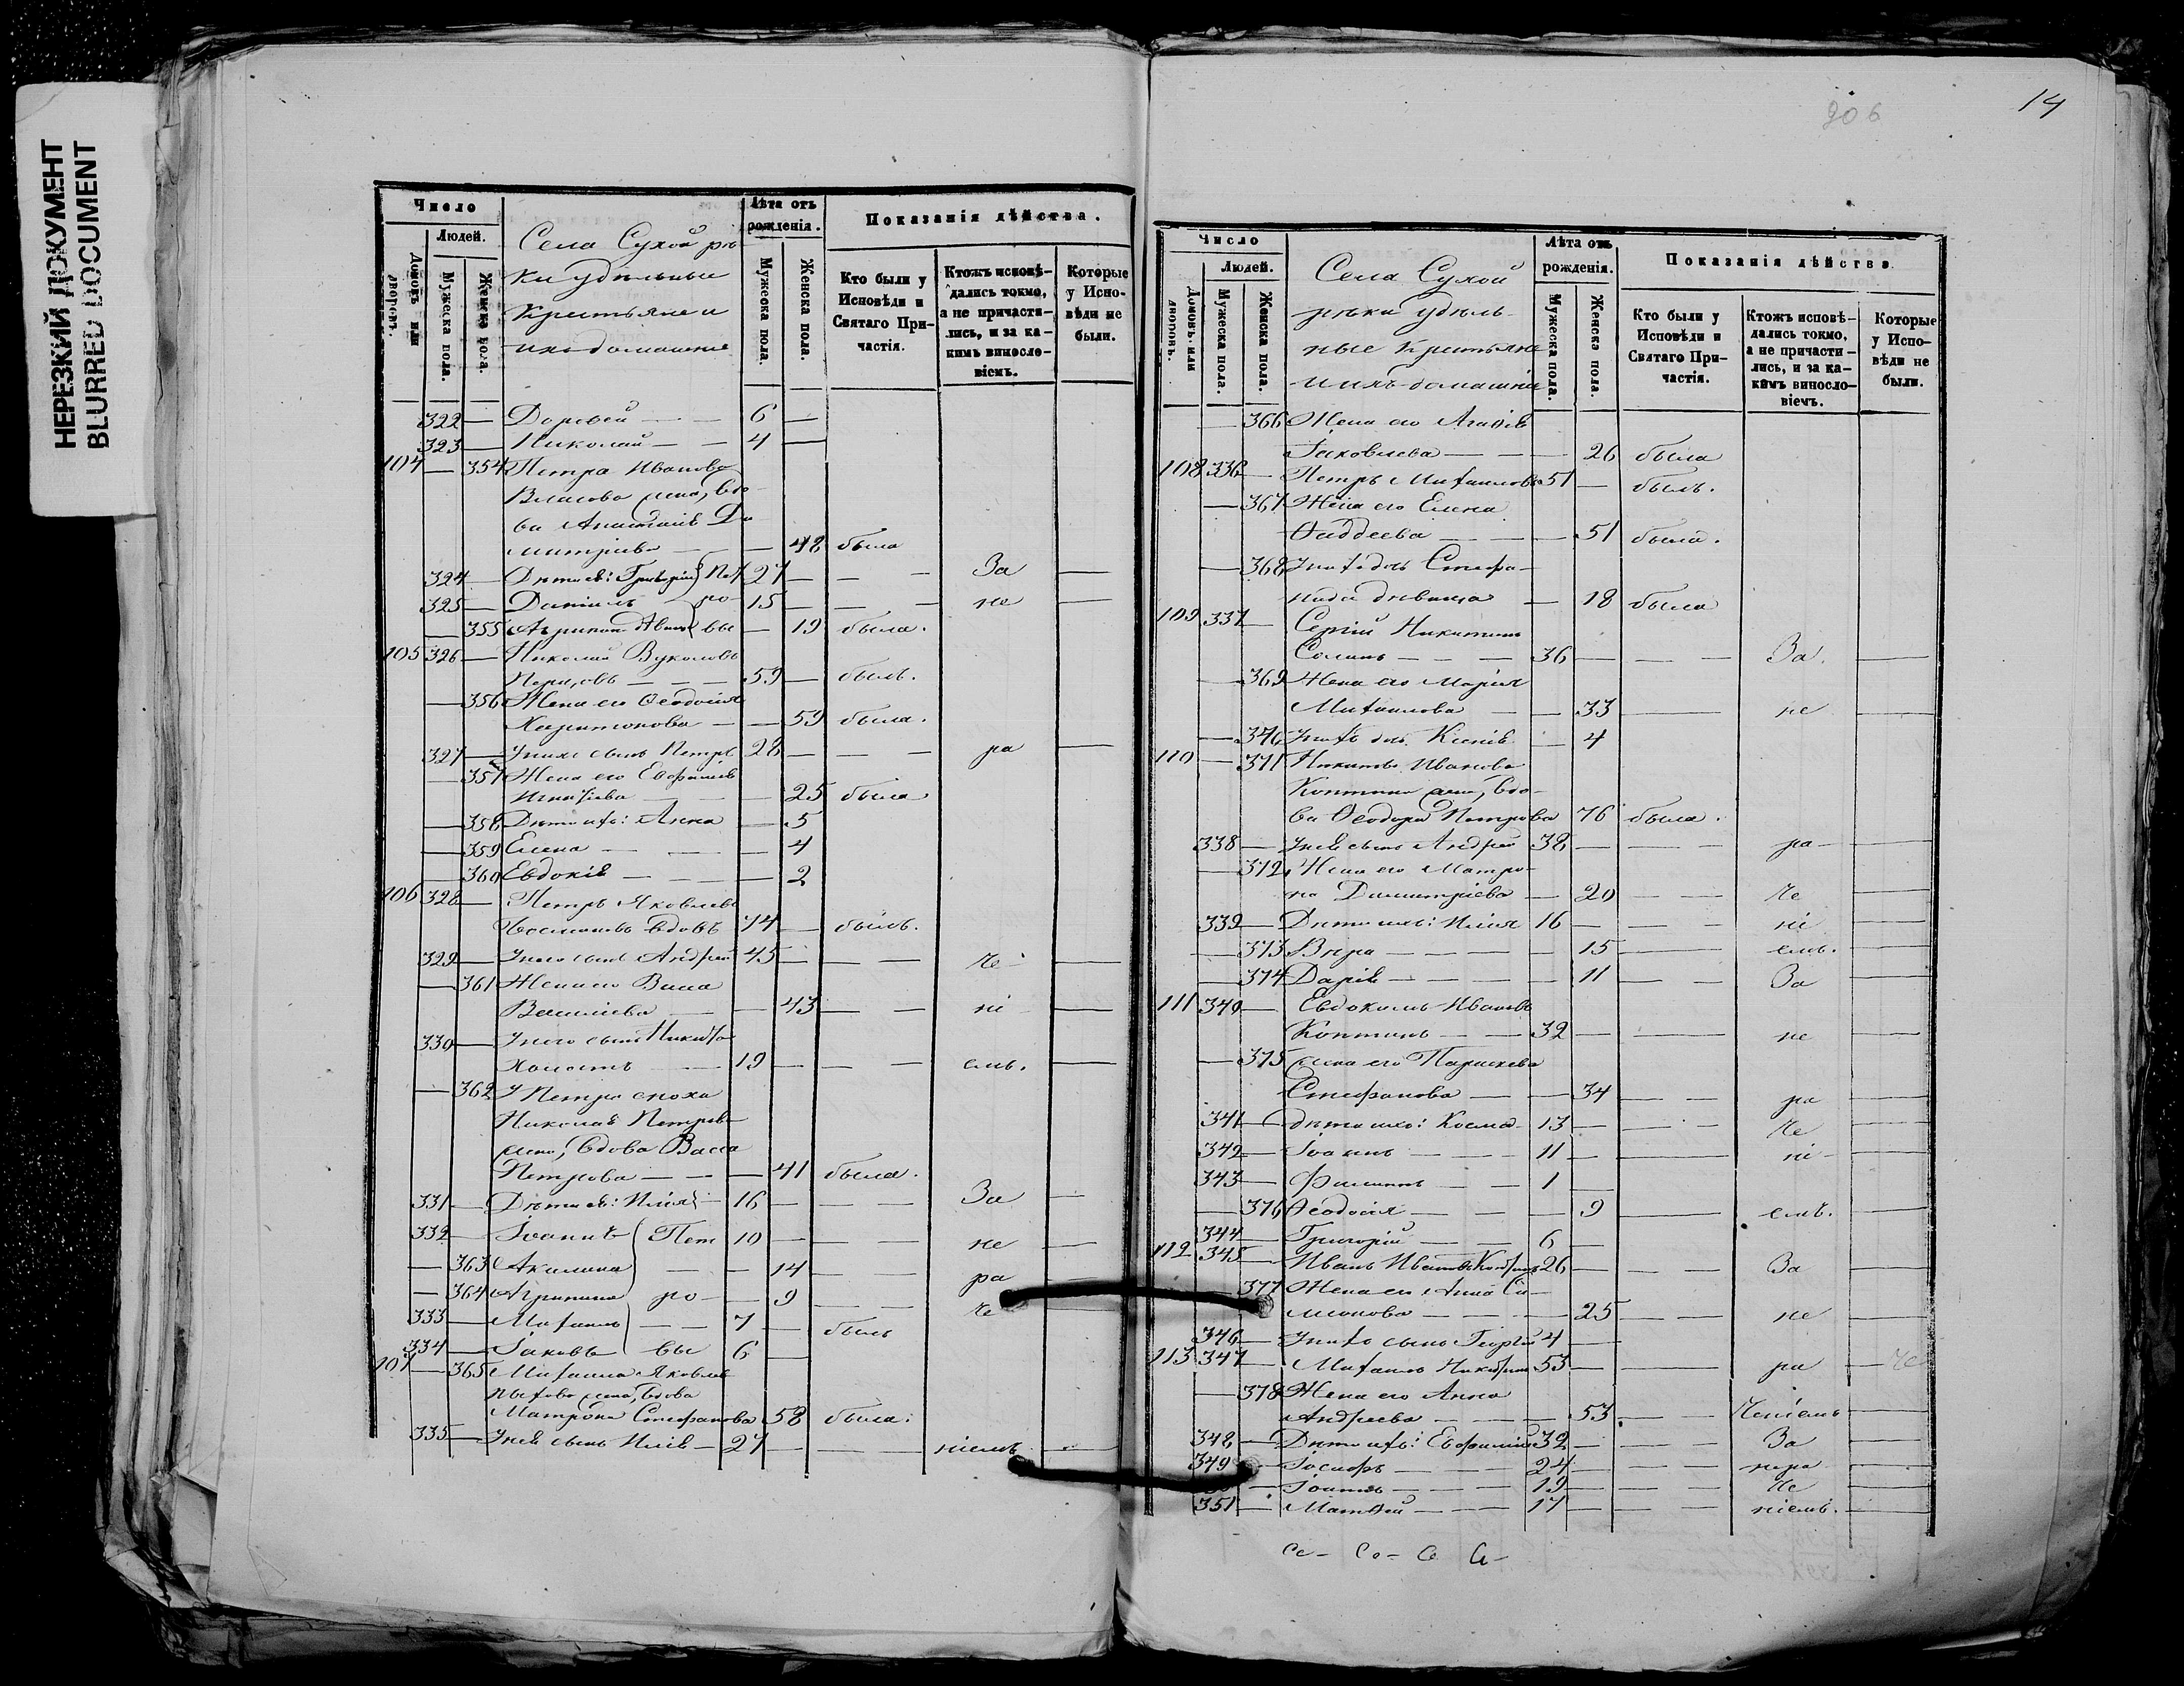 НЕРЕЗКИЙ ДОКУМЕНТ
BLURRED DOCUMENT
Число
Людей.
Домовъ или дворовъ.
Мужеска пола.
Женска пола.
Села Сухой рѣ
ки удѣльныя
Крестьяне и
ихъ домашніе
Лѣта отъ рожденія.
Мужеска пола.
Женска пола.
Показанія дѣйства.
Кто были у Исповѣди и Святаго При-частія.
Ктожъ исповѣ-дались токмо, а не причасти-лись, и за ка-кимъ винosло-віемъ.
Которые у Испо-вѣди не были.
322 — Дороѳей — — 6 —
323 — Николай — — 4 —
104 — 354 Петра Иванова
Власова жена, вдо-
ва Анастасія Ди
митріева — — 48 была
324 — Дѣти ея: Григорій Пет 27 — — — За —
325 — Даніилъ ро 15 — — — не —
— 355 Агрипина вы — 19 была.
105 326 — Николай Вуколовъ
— — — 59 — былъ.
— 356 Жена его Ѳеодосія
Харитонова — — 59 была.
327 — У нихъ сынъ Петръ 28 — — — ра —
— 357 Жена его Евфимія
Игнатіева — — 25 была
— 358 Дѣти ихъ: Анна — 5
— 359 Елена — — — 4
— 360 Евдокія — — — 2
106 328 — Петръ Яковлевъ
вдовъ 74 — былъ.
329 — У него сынъ Андрей 45 — — — че —
— 361 Жена его Васса
Василіева — — 43 — — ні —
330 — У него сынъ Никита
холостъ — 19 — — — емъ. —
— 362 У Петра сноха
Николая Петрова
жена, вдова Васса
Петрова — — — 41 была.
331 — Дѣти ея: Илія 16 — — — За —
332 — Іоаннъ Пет 10 — — — не —
— 363 Акилина — — 14 — — ра —
— 364 Агрипина ро — 9 — — че
333 — Михаилъ — — 7 — былъ
334 — Іаковъ вы 6 —
107 — 365 Михаила Яковлева
жена, вдова
Матрона Стефанова 58 была.
335 — У нея сынъ Илія — 27 — — — ніемъ —
206
14
Число
Людей.
Домовъ или дворовъ.
Мужеска пола.
Женска пола.
Села Сухой
рѣки удѣль-
ные Крестьяне
и ихъ домашніе
Лѣта отъ рожденія.
Мужеска пола.
Женска пола.
Показанія дѣйства
Кто были у Исповѣди и Святаго При-частія.
Ктожъ исповѣ-дались токмо, а не причасти-лись, и за ка-кимъ виносло-віемъ.
Которые у Испо-вѣди не были.
366 Жена его Агаѳія
Іаковлева — — — 26 была
108 336 — Петръ Михаиловъ 51 — былъ.
— 367 Жена его Елена
Ѳаддеева — — — 51 была.
— 368 У нихъ дочь Стефа-
нида дѣвица — 18 была
109 337 — Сергій Никитинъ
— — 36 — — — За. —
— 369 Жена его Марія
Михаилова — — 33 — не —
— 370 У нихъ доч. Ксенія — 4
110 — 371 Никиты Иванова
Коптина жена, вдо-
ва Ѳеодора Петрова 76 была.
338 — У нея сынъ Андрей 38 — — — ра —
— 372 Жена его Матро-
на Димитріева — 20 — — че —
339 — Дѣти ихъ: Илія 16 — — — ні —
— 373 Вѣра — — — 15 — емъ. —
— 374 Дарія — — — 11 — — За —
111 340 — Евдокимъ Ивановъ
Коптинъ — — 32 — — не —
— 375 жена его Параскева
Стефанова — — 34 — — ра —
341 — дѣти ихъ: Косма — 13 — — — че —
342 — Іоаннъ — — — 11 — — ні —
343 — Филиппъ — — 1 —
— 376 Ѳеодосія — — — 9 — емъ. —
344 — Григорій — — 6 —
112 345 — Иванъ Ивановъ 26 — — — За —
377 Жена его Анна Си-
меонова — — — 25 — — не —
346 — У нихъ сынъ Георгій 4 —
113 347 — Михаилъ 53 — — ра — че
— 378 Жена его Анна
Андреева — — — 53 — — ченіемъ —
348 — Дѣти ихъ: Евфимій 32 — — — За —
349 — Іосифъ — — — 24 — — — нера —
— Іоаннъ — — — 19 — — — че —
351 — Матѳей — — — 17 — — — ніемъ. —